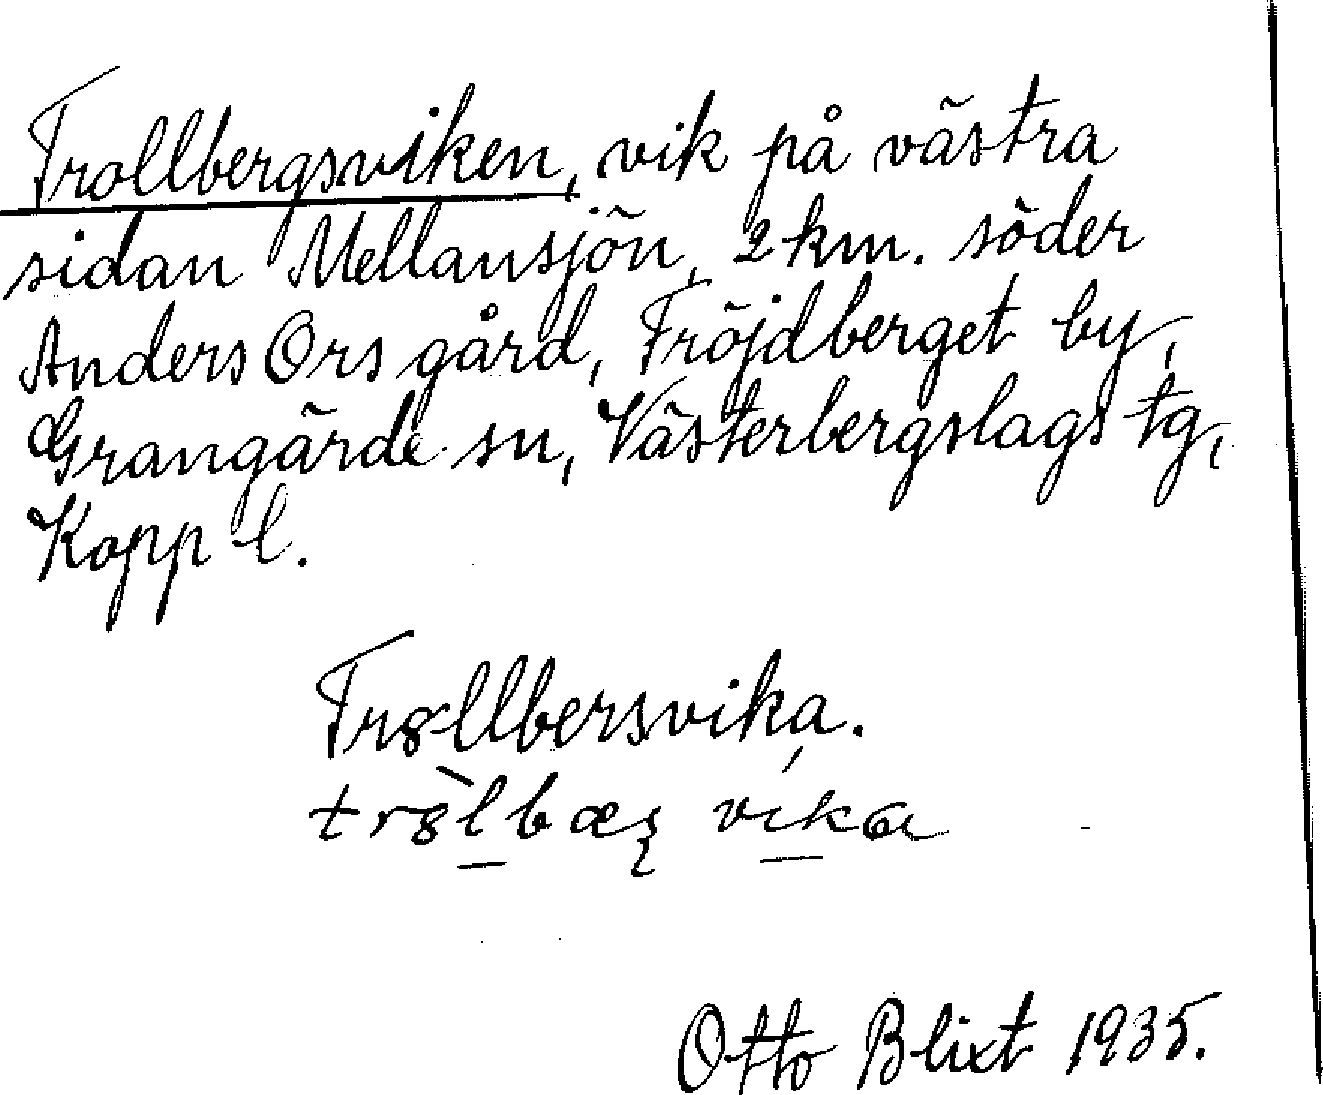 Trollbergsviken, vik på västra
sidan Mellansjön, 2 km. söder
Anders Ors gård, Fröjdberget by,
Grangärde sn, Västerbergslags tg,
Kopp l.
Trollbersvika.
Otto Blixt 1935.